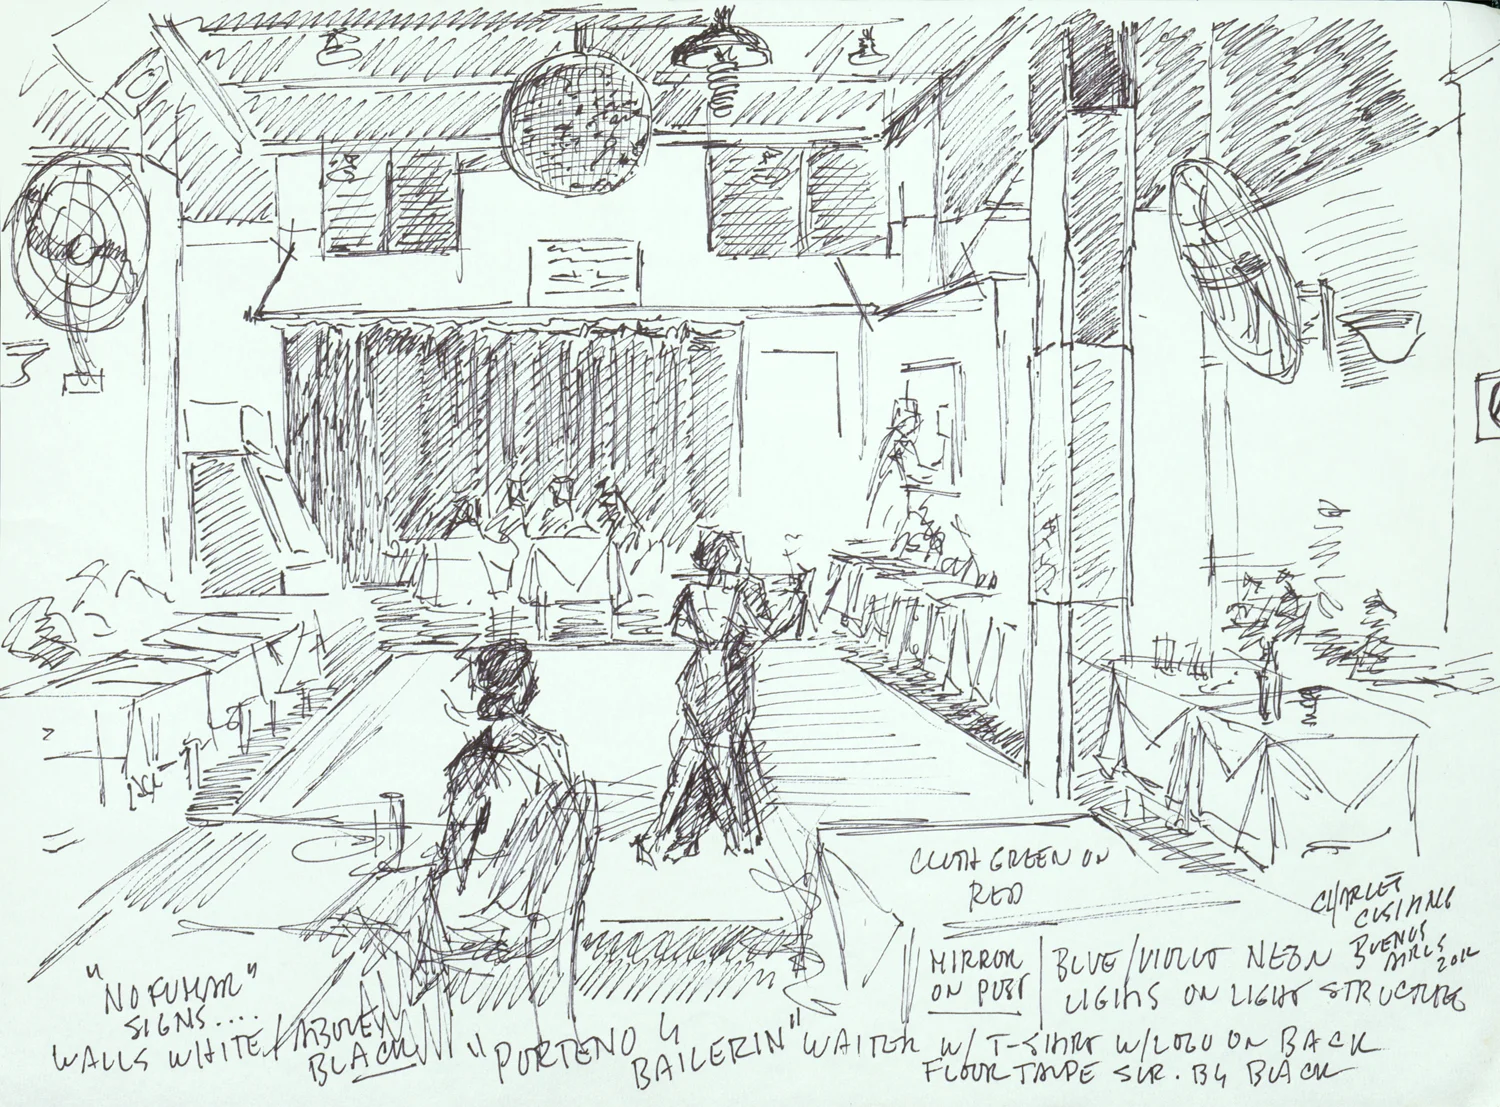 CLOTH GREEN ON
RED
CHARLET
CUSHING
BUENOS
AIRES
2012
MIRROR
ON POST
BLUE/VIOLET NEON
LIGHTS ON LIGHT STRUCTURE
"NO FUMAR"
SIGNS....
WALLS WHITE/ABOVE
BLACK
"PORTENO Y
BAILERIN"
WAITER W/ T-SHIRT W/LOGO ON BACK
FLOOR TAUPE SUR. BY BLACK